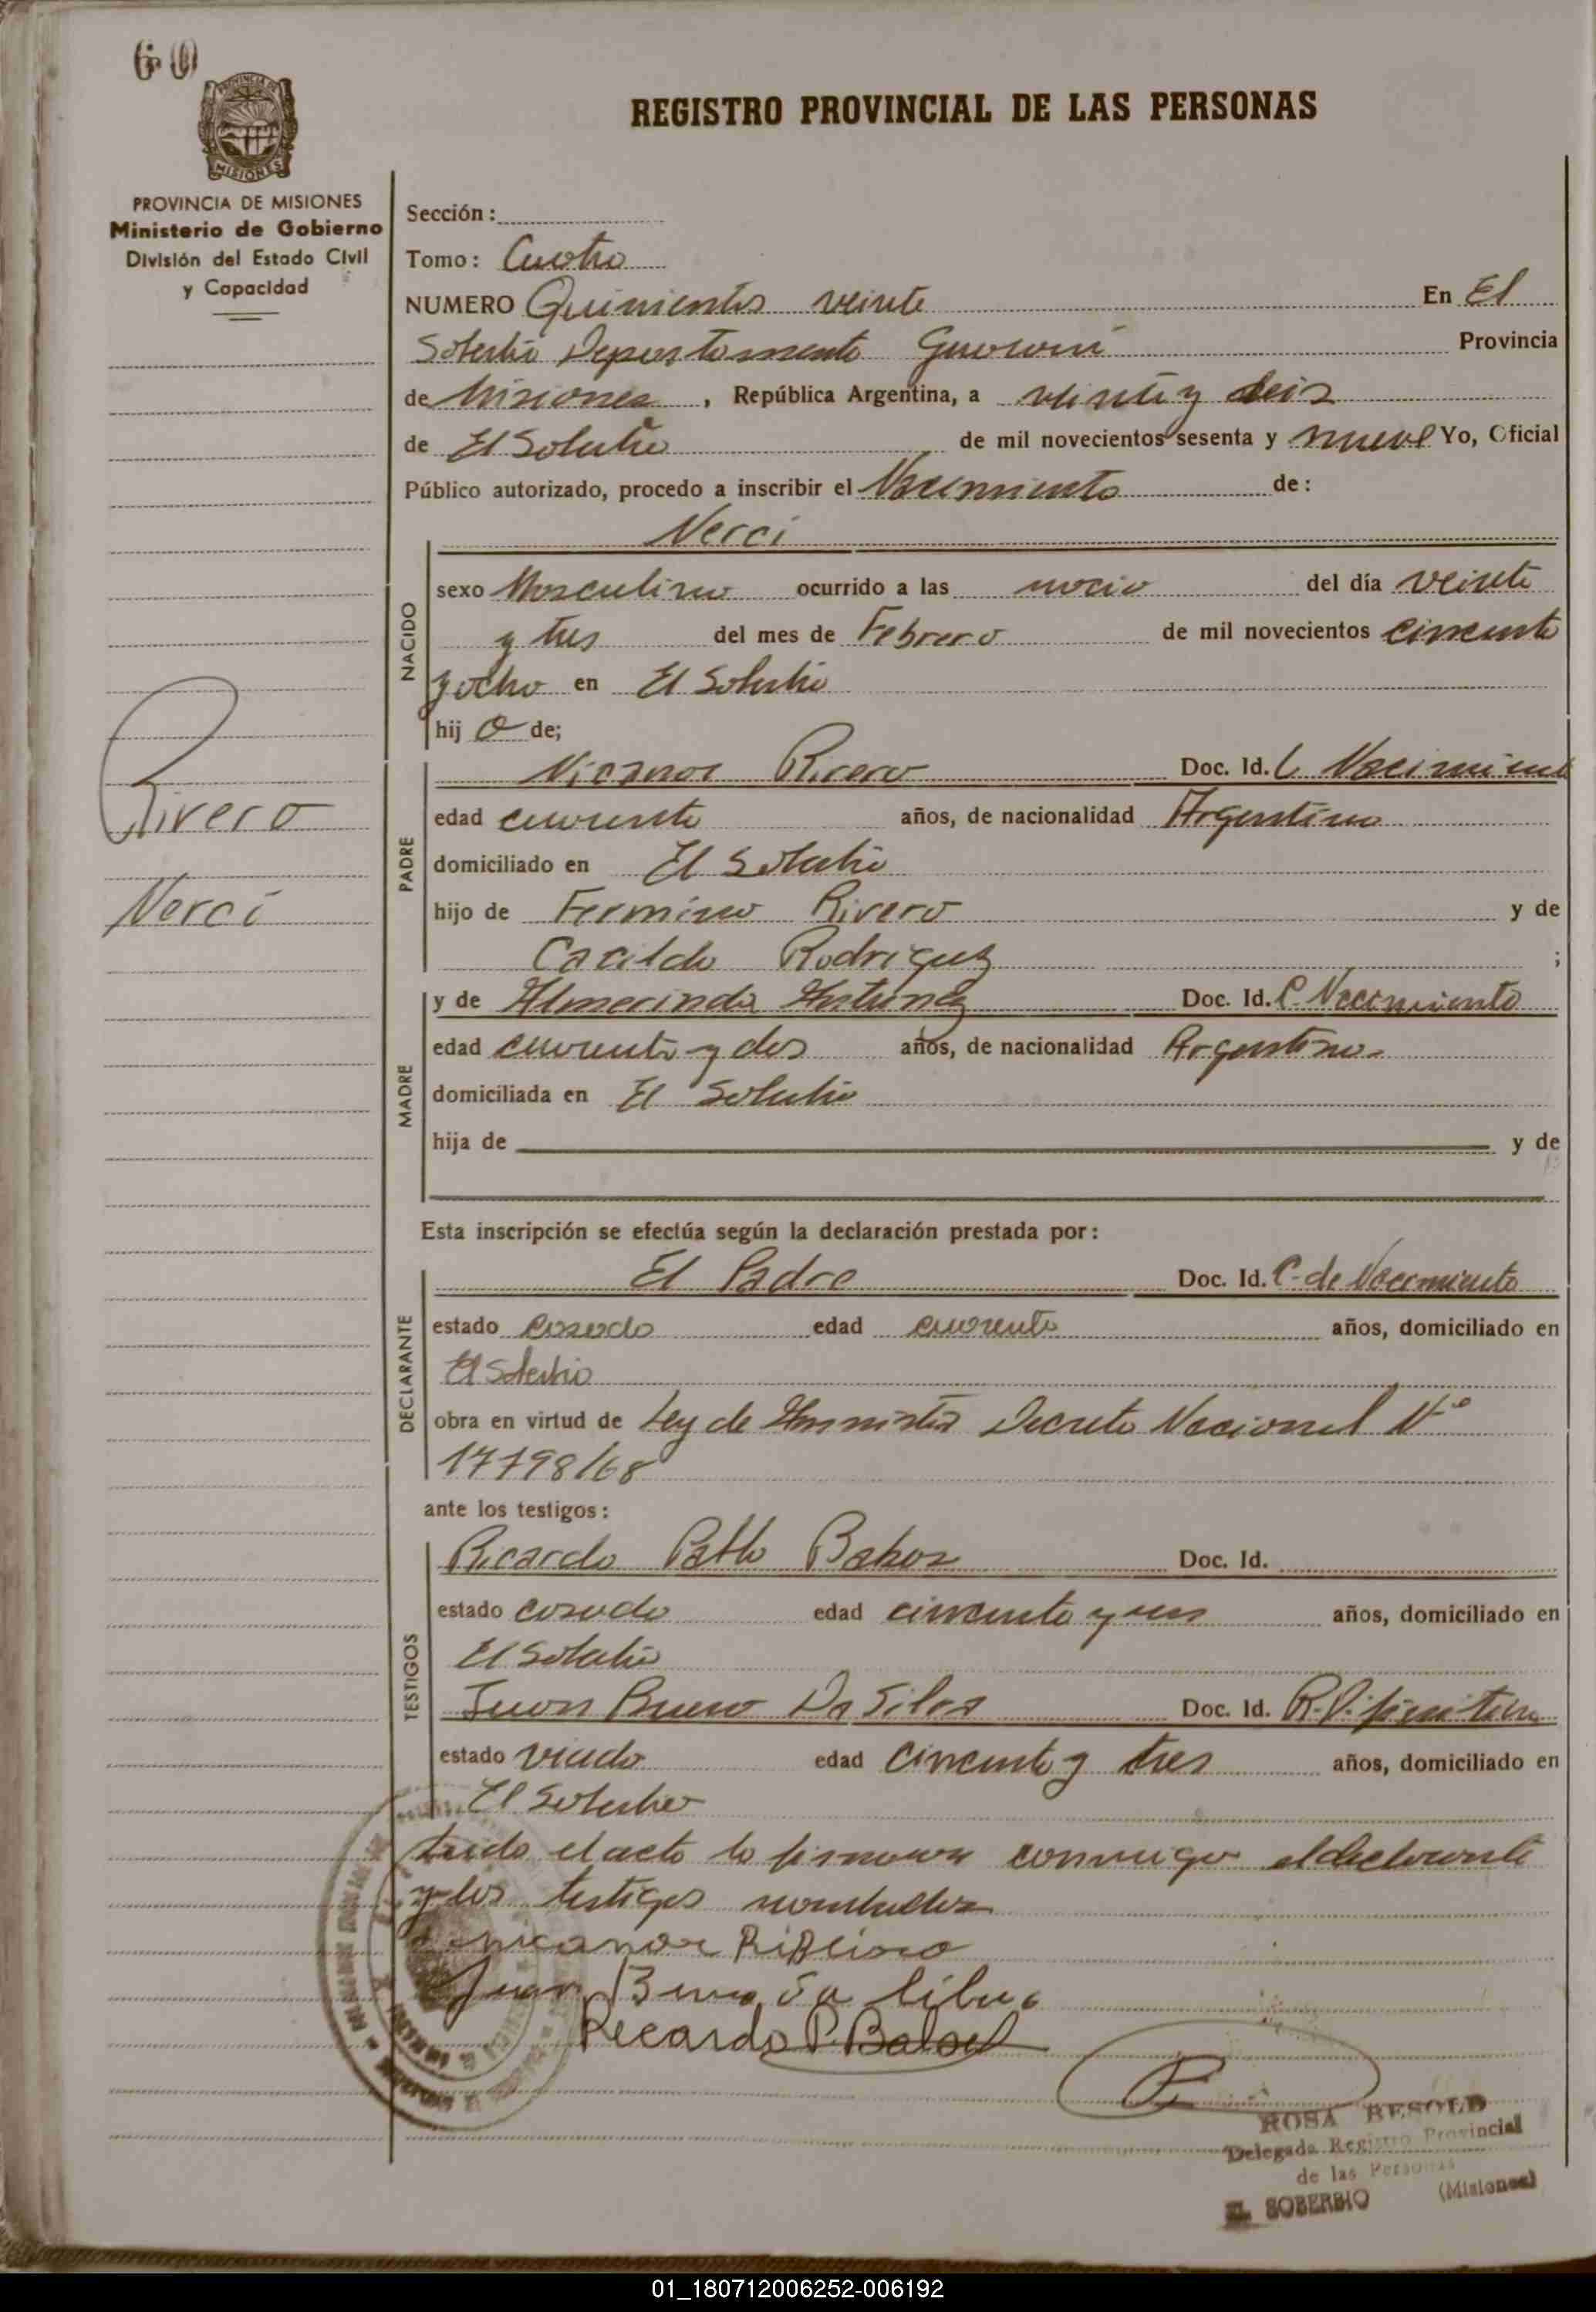 60
REGISTRO PROVINCIAL DE LAS PERSONAS
PROVINCIA DE MISIONES
MISIONES
PROVINCIA DE MISIONES
Ministerio de Gobierno
División del Estado Civil
y Capacidad
Sección:
Tomo: Cuatro
NUMERO Quinientos veinte En El
Soberbio Departamento Guaraní Provincia
de Misiones, República Argentina, a veinte y seis
de El Soberbio de mil novecientos sesenta y nueve Yo, Oficial
Público autorizado, procedo a inscribir el Nacimiento de:
Nerci
NACIDO
sexo Masculino ocurrido a las del día veinte
y tres del mes de Febrero de mil novecientos cincuenta
y ocho en El Soberbio
hij o de;
Rivero
Nerci
PADRE
Nicanor Rivero Doc. Id. C. Nacimiento
edad cuarenta años, de nacionalidad Argentino
domiciliado en El Soberbio
hijo de Fermino Rivero y de
Cacilda Rodriguez ;
MADRE
y de Almerinda Antunez Doc. Id. C. Nacimiento
edad cuarenta y dos años, de nacionalidad Argentina
domiciliada en El Soberbio
hija de y de
Esta inscripción se efectúa según la declaración prestada por:
DECLARANTE
El Padre Doc. Id. C. de Nacimiento
estado casado edad cuarenta años, domiciliado en
El Soberbio
obra en virtud de Ley de Amnistia Decreto Nacional Nº
17798/68
ante los testigos:
TESTIGOS
Ricardo Pablo Doc. Id.
estado casado edad cincuenta y un años, domiciliado en
El Soberbio
Juan Bueno Da Silva Doc. Id.
estado viudo edad cincuenta y tres años, domiciliado en
El Soberbio
Leido el acta la firmaron conmigo el declarante
y los testigos nombrados
nicanor
Juan
Ricardo P.
ROSA BESOLD
Delegada Registro Provincial
de las Personas
EL SOBERBIO (Misiones)
01_180712006252-006192